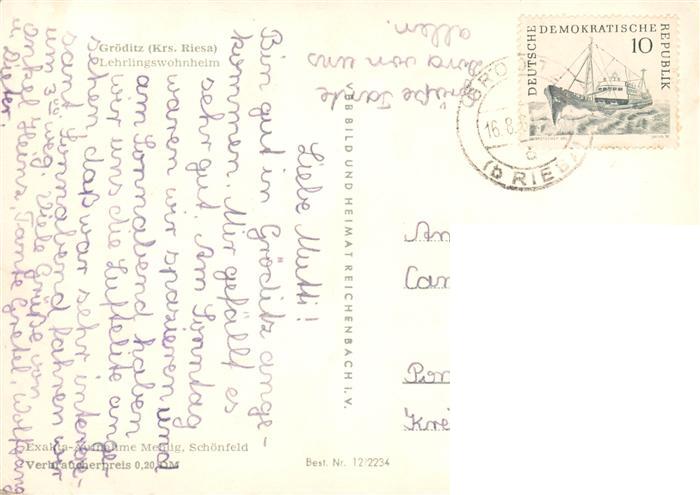 Gröditz (Krs. Riesa)
Lehrlingswohnheim
Liebe Mutti!
Bin gut in Gröditz ange-
kommen. Mir gefällt es
sehr gut. Am Sonntag
waren wir spazieren und
am Sonnabend haben
wir uns die Luftelite ange-
sehen, daß war sehr interes-
sant. Sonnabend fahren wir
um 3 weg. Viele Grüße von
Onkel Heinz, Tante Gretel, Wolfgang
u. Dieter.
Grüße Tante
von uns
allen.
VEB BILD UND HEIMAT REICHENBACH I. V.
DEUTSCHE DEMOKRATISCHE REPUBLIK
10
GRÖ
16.8.
c
(b RIESA)
An
Cam
Pom
Kre
Exakta-Aufnahme Mehlig, Schönfeld
Verbraucherpreis 0,20 DM
Best. Nr. 12/2234